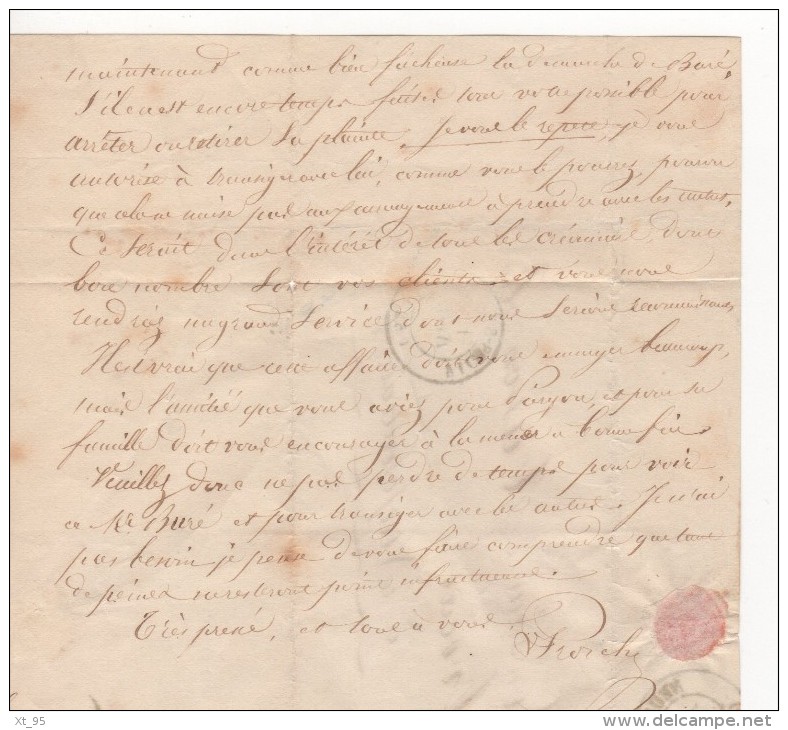 maintenant comme bien fâcheuse la démarche de Buré
S'il en est encore temps faites tout votre possible pour
arrêter ou retirer sa plainte. Je vous le repete, je vous
autorise à transiger avec lui, comme vous le pourrez, pourvu
que cela ne nuise pas aux arrangements à prendre avec les autres.
Ce serait dans l'intérêt de tous les créanciers, dont
bon nombre sont vos clients et vous nous
rendriez un grand service dont nous serions reconnaissants
Il est vrai que cette affaire doit vous ennuyer beaucoup,
mais l'amitié que vous aviez pour et pour sa
famille doit vous encourager à la mener à bonne fin.
Veuillez donc ne pas perdre de temps pour voir
ce Mr Buré et pour transiger avec les autres. Je n'ai
pas besoin je pense de vous faire comprendre que tant
de peines ne resteront point infructueuses.
Très pressé, et tout à vous
Xt_95
www.delcampe.net